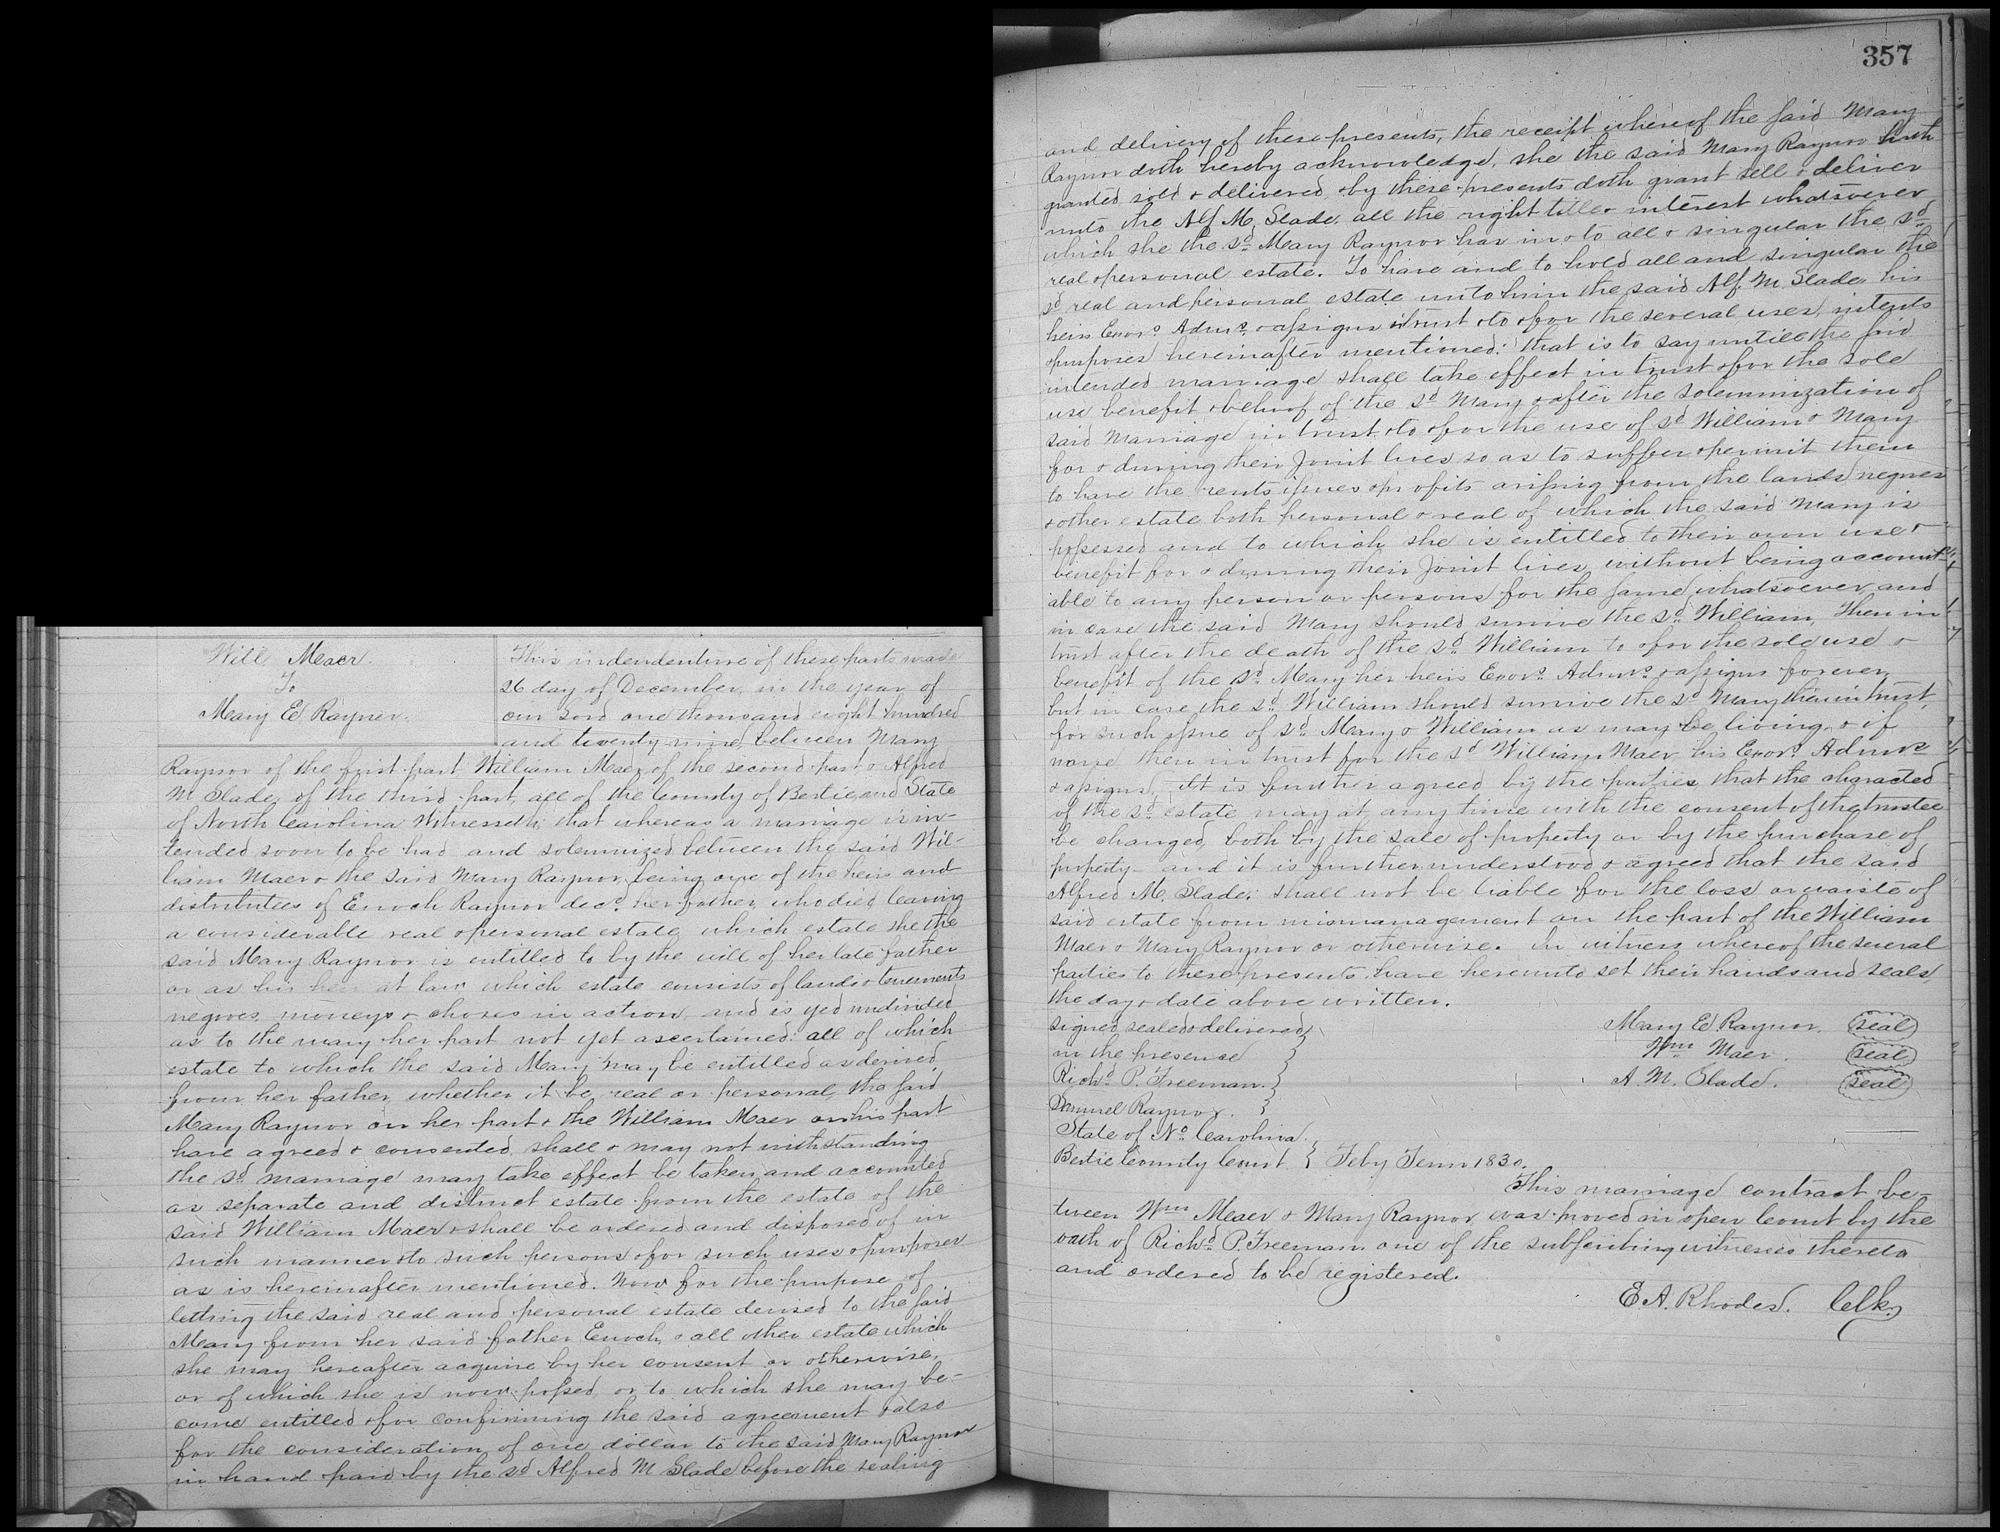 Will Maer.
To
Mary E Rayner.
This indendenture of three parts made
26 day of December, in the year of
our Lord one thousand eight hundred
and twenty nine, between Mary
Raynor of the first part William Maer of the second part & Alfred
M Slade, of the third part, all of the County of Bertie and State
of North Carolina Witnesseth; that whereas a marriage is in-
tended soon to be had and solemnized between the said Wil-
liam Maer & the said Mary Raynor, being one of the heirs and
distributees of Enoch Raynor decd. her father, who died leaving
a considerable real & personal estate, which estate she the
said Mary Raynor is entitled to by the will of her late father
or as his heir at law which estate consists of lands & tenements
negroes, moneys & choses in action, and is yed undivided
as to the mary her part not yet ascertained: all of which
estate to which the said Mary may be entitled as derived
from her father, whether it be real or personal, the said
Mary Raynor on her part & the William Maer on his part
have agreed & consented, shall & may not withstanding
the sd. marriage may take effect be taken and accounted
as separate and distinct estate from the estate of the
said William Maer & shall be ordered and disposed of in
such manner & to such persons & for such uses & purposes
as is hereinafter mentioned. Now for the purpose of
letting the said real and personal estate devised to the said
Mary from her said father Enoch, & all other estate which
she may hereafter acquire by her consent or otherwise,
or of which she is now possed, or to which she may be-
come entitled & for confirming the said agreement & also
for the consideration of one dollar to the said Mary Raynor
in hand paid by the sd Alfred M Slade before the sealing
357
and delivery of these presents, the receipt whereof the said Mary
Raynor doth hereby acknowledge, she the said Mary Raynor hath
granted sold & delivered & by these presents doth grant sell & deliver
unto the Alf M, Slade, all the right title & interest whatsoever
which she the sd. Mary Raynor has in & to all & singular the sd.
real & personal estate. To have and to hold all and singular the
sd real and personal estate unto him the said Alf. M. Slade his
heirs Exors. Adms. & assigns in trust & to & for the several uses, intents
& purposes hereinafter mentioned: that is to say untill the said
intended marriage shall take effect in trust & for the sole
use benefit & behoof of the sd Mary & after the solemnization of
said Marriage in trust & to & for the use of sd William & Mary
for & during their Joint lives so as to suffer & permit them
to have the rents issues & profits arissing from the lands negroes
& other estate both personal & real of which the said Mary is
possessed and to which she is entitled to their own use &
benefit for & during their Joint lives, without being account-
able to any person or persons for the same whatsoever and
in case the said Mary should survive the sd. William, then in
trust after the death of the sd William to & for the sole use &
benefit of the sd. Mary her heirs Exors. Admrs. & assigns forever,
but in case the sd. William should survive the sd Mary then in trust,
for such issue of sd Mary & William as may be living, & if
none then in trust for the sd William Maer his Exors. Admrs
& assigns, It is further agreed by the parties that the charactes
of the sd. estate may at any time with the consent of the trustee
be changed, both by the sale of property or by the purchase of
property and it is further understood & agreed that the said
Alfred M. Slade, shall not be liable for the loss or waiste of
said estate from mismanagement on the part of the William
Maer & Mary Raynor or otherwise. In witness whereof the several
parties to these presents have hereunto set their hands and seals,
the day & date above written.
signed sealed & delivered
in the presence
Richd P. Freeman.
Samuel Raynor.
Mary E Raynor. seal
Wm Maer. seal
A. M. Slade. seal
State of No. Carolina.
Bertie County Court. } Feby Term 1830.
This marriage contract be-
tween Wm Meaer & Mary Raynor was proved in open Court by the
oath of Richd. P. Freeman one of the subscribing witnesses thereto
and ordered to be registered.
E A. Rhodes. Cclk.